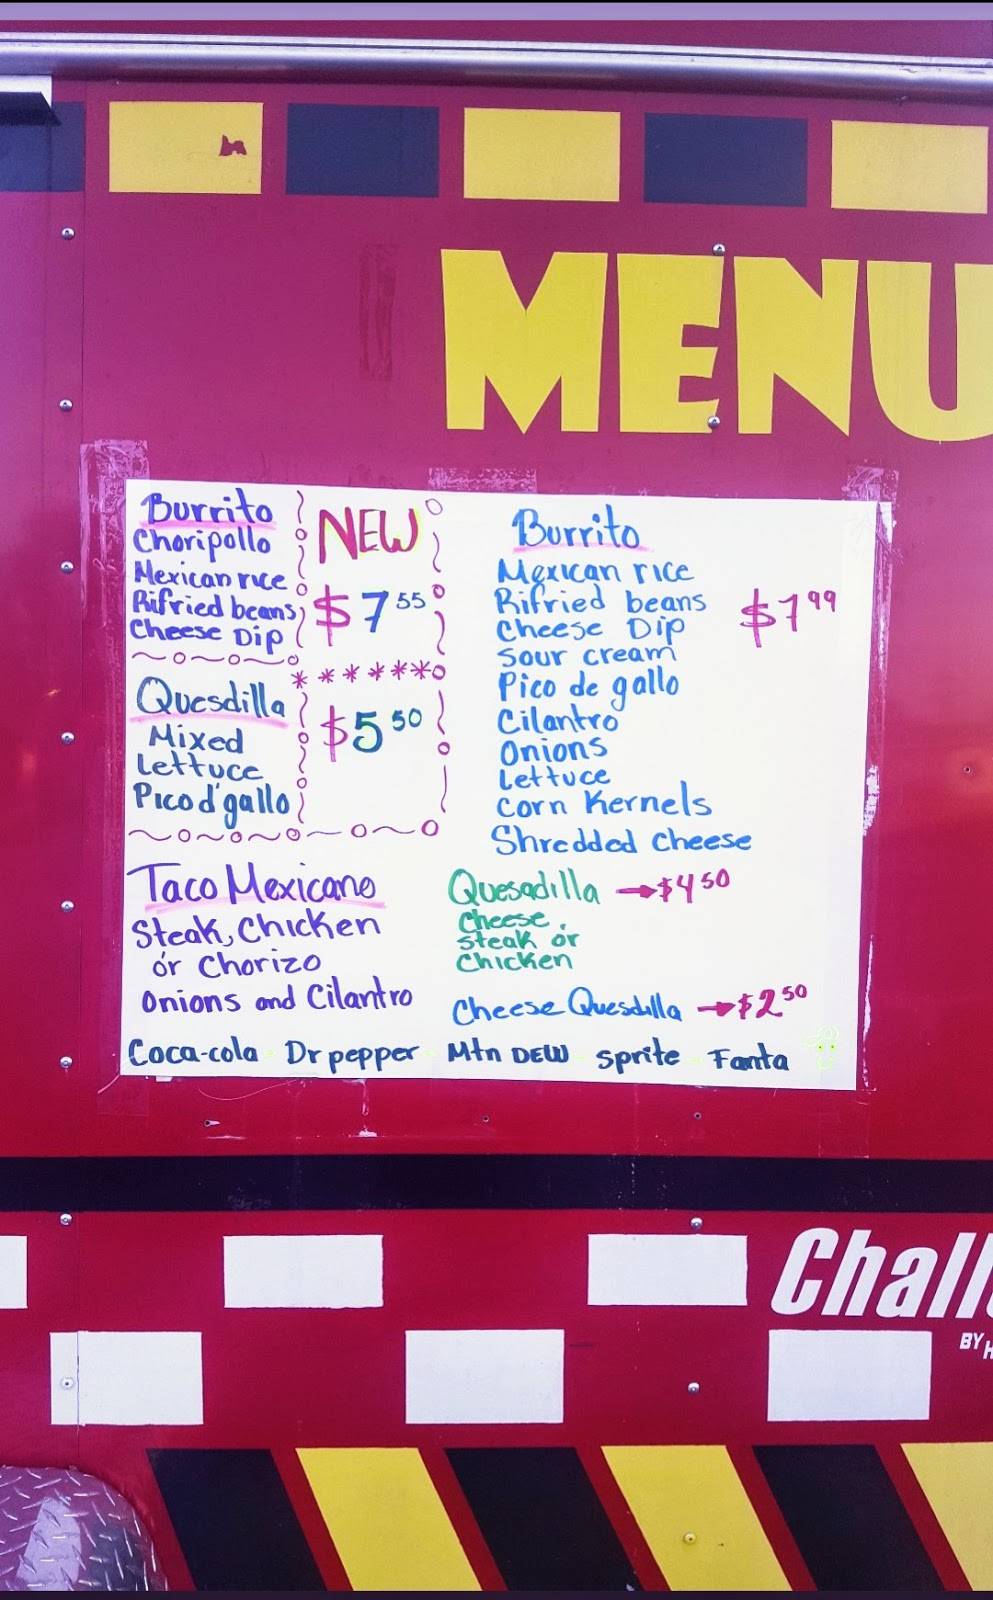 MENU
Burrito
Choripollo
Mexican rice
Rifried beans
Cheese Dip
NEW
$7 55
Quesdilla
Mixed
Lettuce
Pico d'gallo
******
$5 50
Burrito
Mexican rice
Rifried beans
Cheese Dip
Sour cream
Pico de gallo
Cilantro
Onions
Lettuce
Corn Kernels
Shredded Cheese
$7 99
Taco Mexicano
Steak, Chicken
ór Chorizo
Onions and Cilantro
Quesadilla →$4 50
Cheese,
Steak ór
Chicken
Cheese Quesdilla →$2 50
Coca-cola - Dr pepper - Mtn DEW - Sprite - Fanta
Chall
BY H